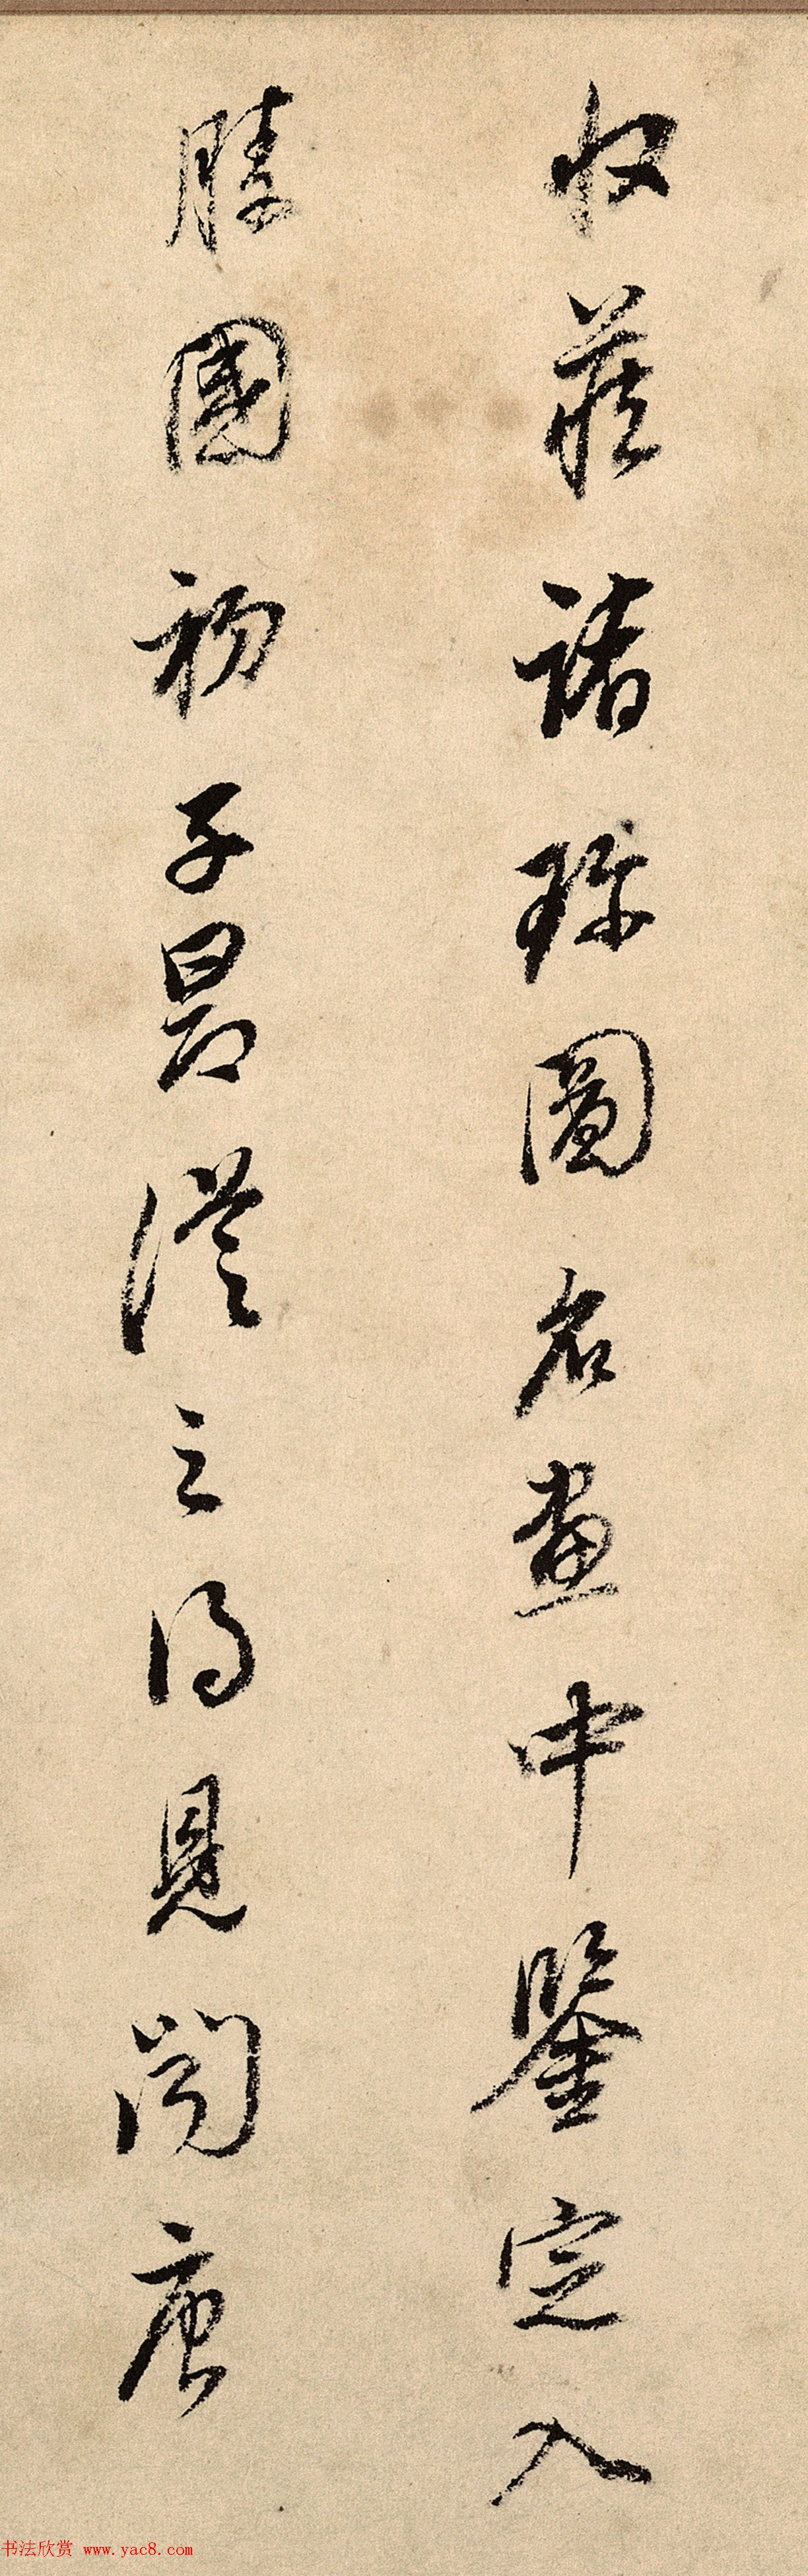 收藏諸珍圖名畫中鑒定入
勝國初子昂從之得見聞唐
书法欣赏 www.yac8.com